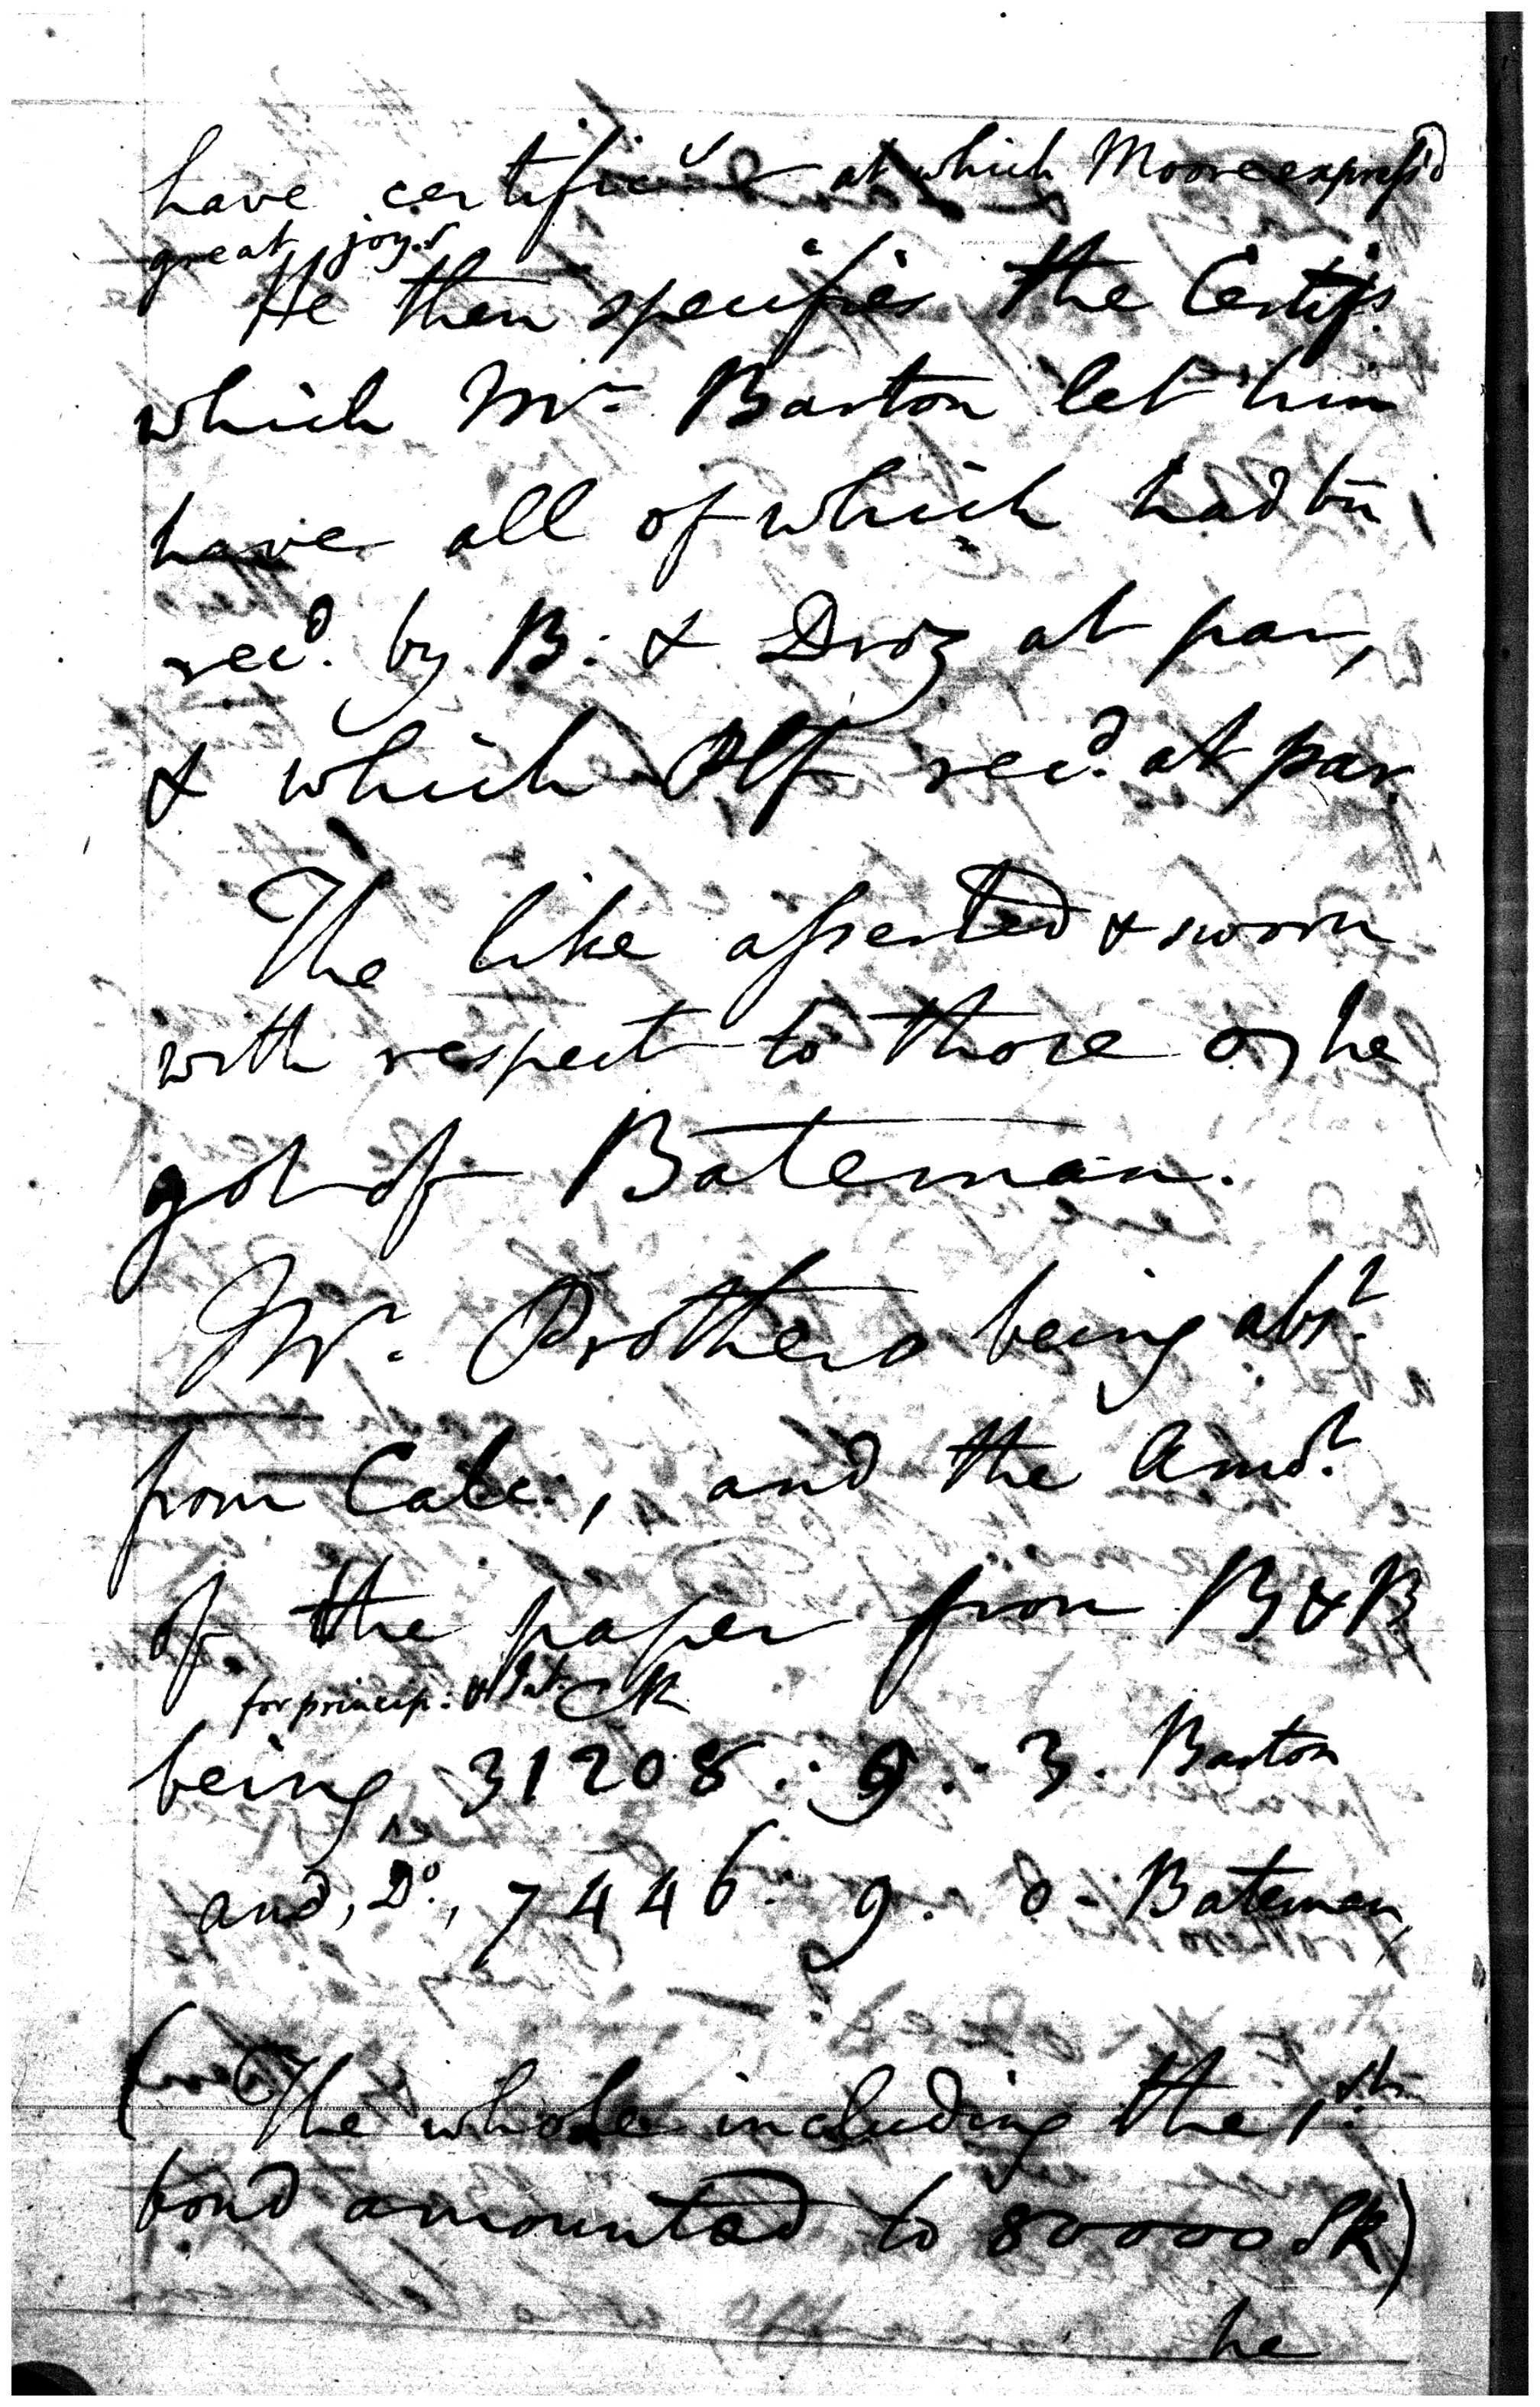 have certific at which Moore express'd
great joy.
He then specifies the Certifs
which Mr. Barton let him
have all of which had bn
recd. by B. & Droz at par,
& which Plf recd. at par.
The like asserted & sworn
with respect to those he
got of Bateman.
Mr. Prothero being abst.
from Calc., and the Amot.
of the paper from B & B
for princip: & Int.
being 31208 .. 9 .. 3. Barton
and, Do., 7446. 9. 0 - Bateman,
(The whole including the 1st.
bond amounted to 80000 SR)
he